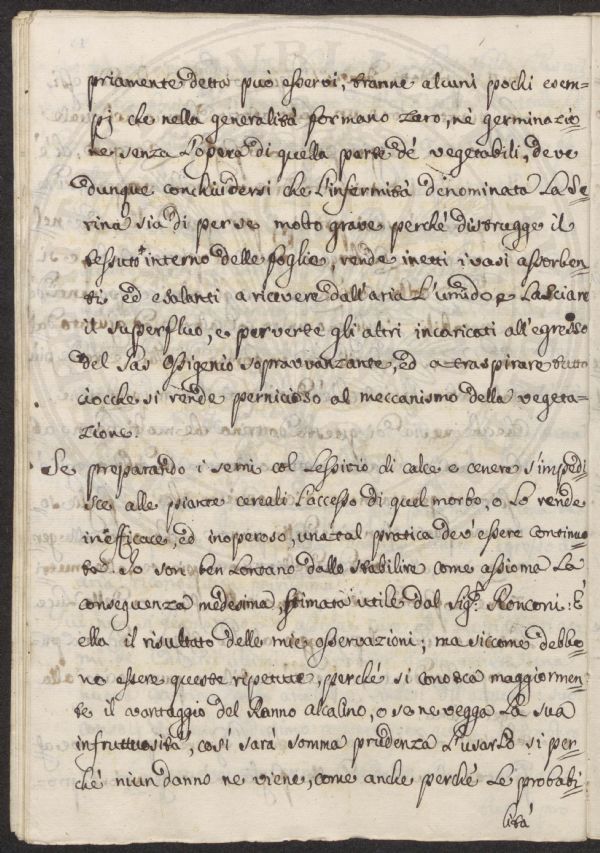 priamente detta può esservi, tranne alcuni pochi esem=
pj che nella generalità formano zero, nè germinazio=
ne senza l'opera di quella parte de' vegetabili, deve
dunque conchiudersi che l'infermità denominata la Se=
rina sia di per se molto grave perché distrugge il
tessuto interno delle foglie, rende inetti i vasi assorben=
ti ed esalanti a ricevere dall'aria l'umido e lasciare
il superfluo, e perverte gli altri incaricati all'egresso
del Gas Ossigenio sopravvanzante, ed a traspirare tutto
ciocche si rende pernicioso al meccanismo della vegeta=
zione.
Se preparando i semi col Lespitio di calce e cenere s'impedi=
sce alle piante cereali l'accesso di quel morbo, o lo rende
inefficace, ed inoperoso, una tal pratica dev'essere continuo
ta. Io son ben lontano dallo stabilire come assioma la
conseguenza medesima, stimata utile dal Sig.r Ronconi: È
ella il risultato delle mie osservazioni; ma siccome debbo=
no essere queste ripetute, perché si conosca maggiormen=
te il vantaggio del Ranno alcalino, o se ne vegga la sua
infruttuosità, così sarà somma prudenza l'usarlo si per=
ché niun danno ne viene, come anche perché le probabi=
lità